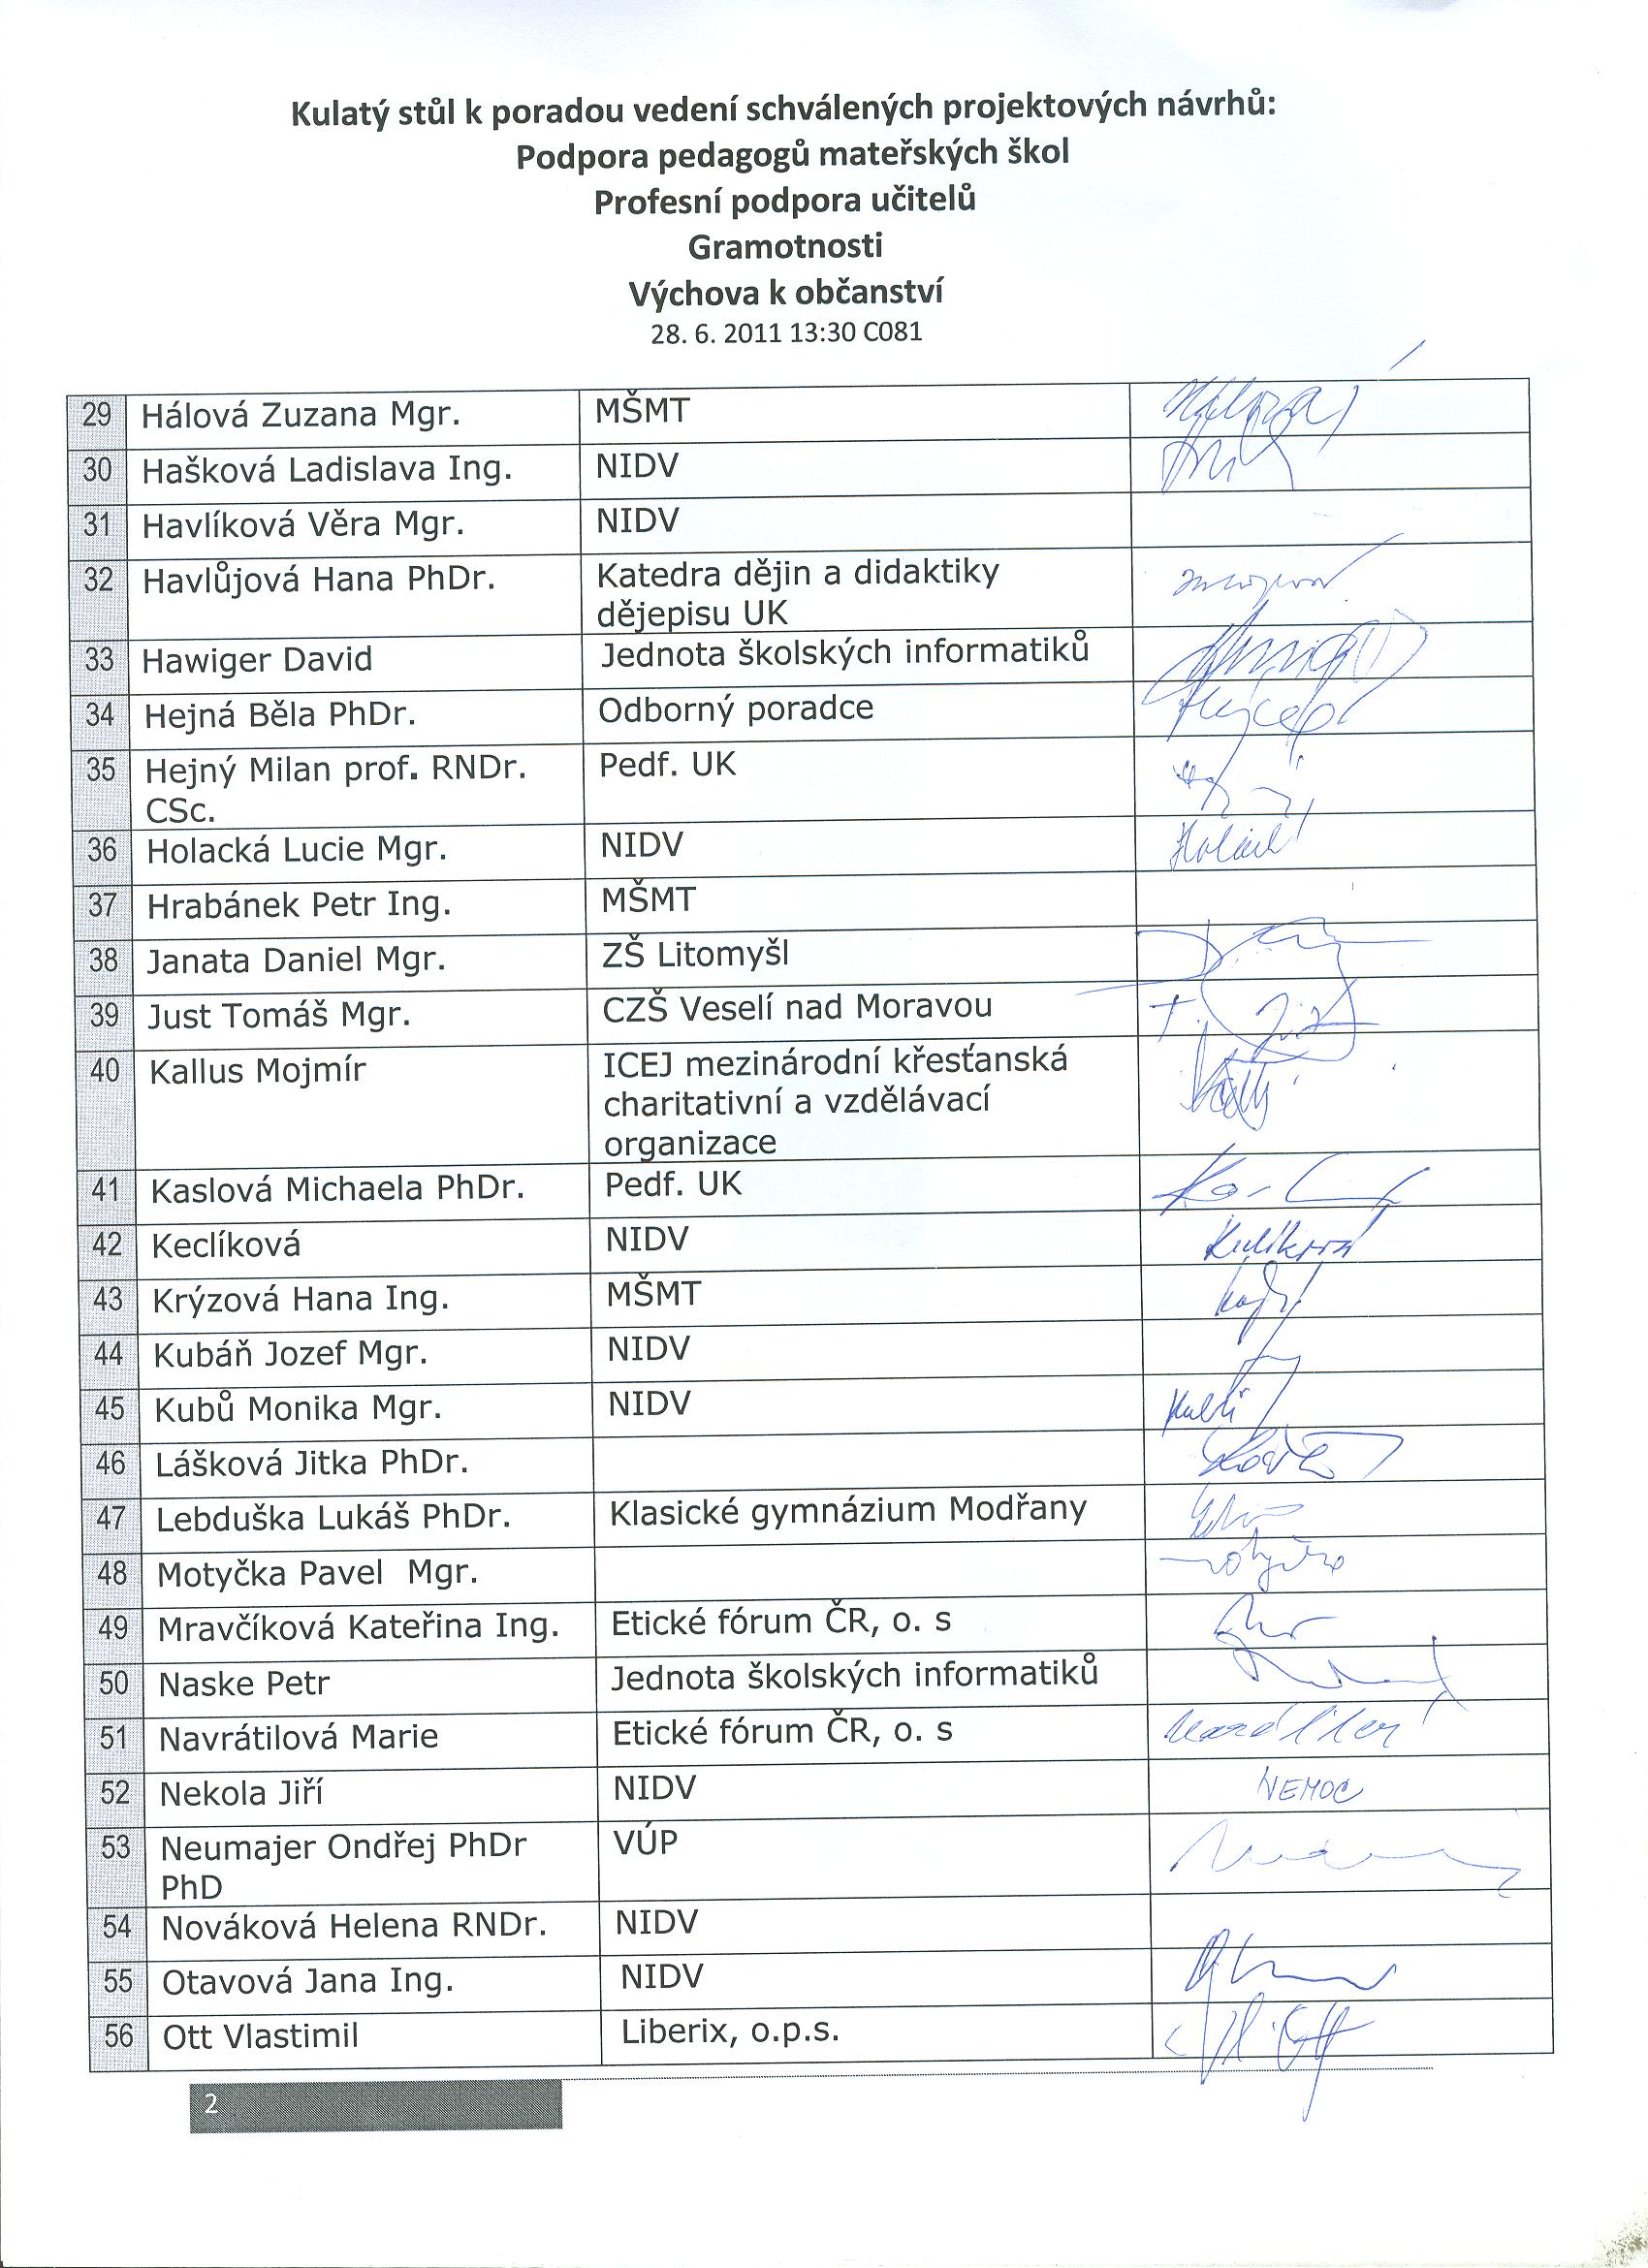 Kulatý stůl k poradou vedení schválených projektových návrhů:
Podpora pedagogů mateřských škol
Profesní podpora učitelů
Gramotnosti
Výchova k občanství
28. 6. 2011 13:30 C081
29 Hálová Zuzana Mgr. MŠMT
30 Hašková Ladislava Ing. NIDV
31 Havlíková Věra Mgr. NIDV
32 Havlůjová Hana PhDr. Katedra dějin a didaktiky
dějepisu UK
33 Hawiger David Jednota školských informatiků
34 Hejná Běla PhDr. Odborný poradce
35 Hejný Milan prof. RNDr. Pedf. UK
CSc.
36 Holacká Lucie Mgr. NIDV
37 Hrabánek Petr Ing. MŠMT
38 Janata Daniel Mgr. ZŠ Litomyšl
39 Just Tomáš Mgr. CZŠ Veselí nad Moravou
40 Kallus Mojmír ICEJ mezinárodní křesťanská
charitativní a vzdělávací
organizace
41 Kaslová Michaela PhDr. Pedf. UK
42 Keclíková NIDV
43 Krýzová Hana Ing. MŠMT
44 Kubáň Jozef Mgr. NIDV
45 Kubů Monika Mgr. NIDV Kubů
46 Lášková Jitka PhDr.
47 Lebduška Lukáš PhDr. Klasické gymnázium Modřany
48 Motyčka Pavel Mgr.
49 Mravčíková Kateřina Ing. Etické fórum ČR, o. s
50 Naske Petr Jednota školských informatiků
51 Navrátilová Marie Etické fórum ČR, o. s
52 Nekola Jiří NIDV NEMOC
53 Neumajer Ondřej PhDr VÚP
PhD
54 Nováková Helena RNDr. NIDV
55 Otavová Jana Ing. NIDV
56 Ott Vlastimil Liberix, o.p.s.
2